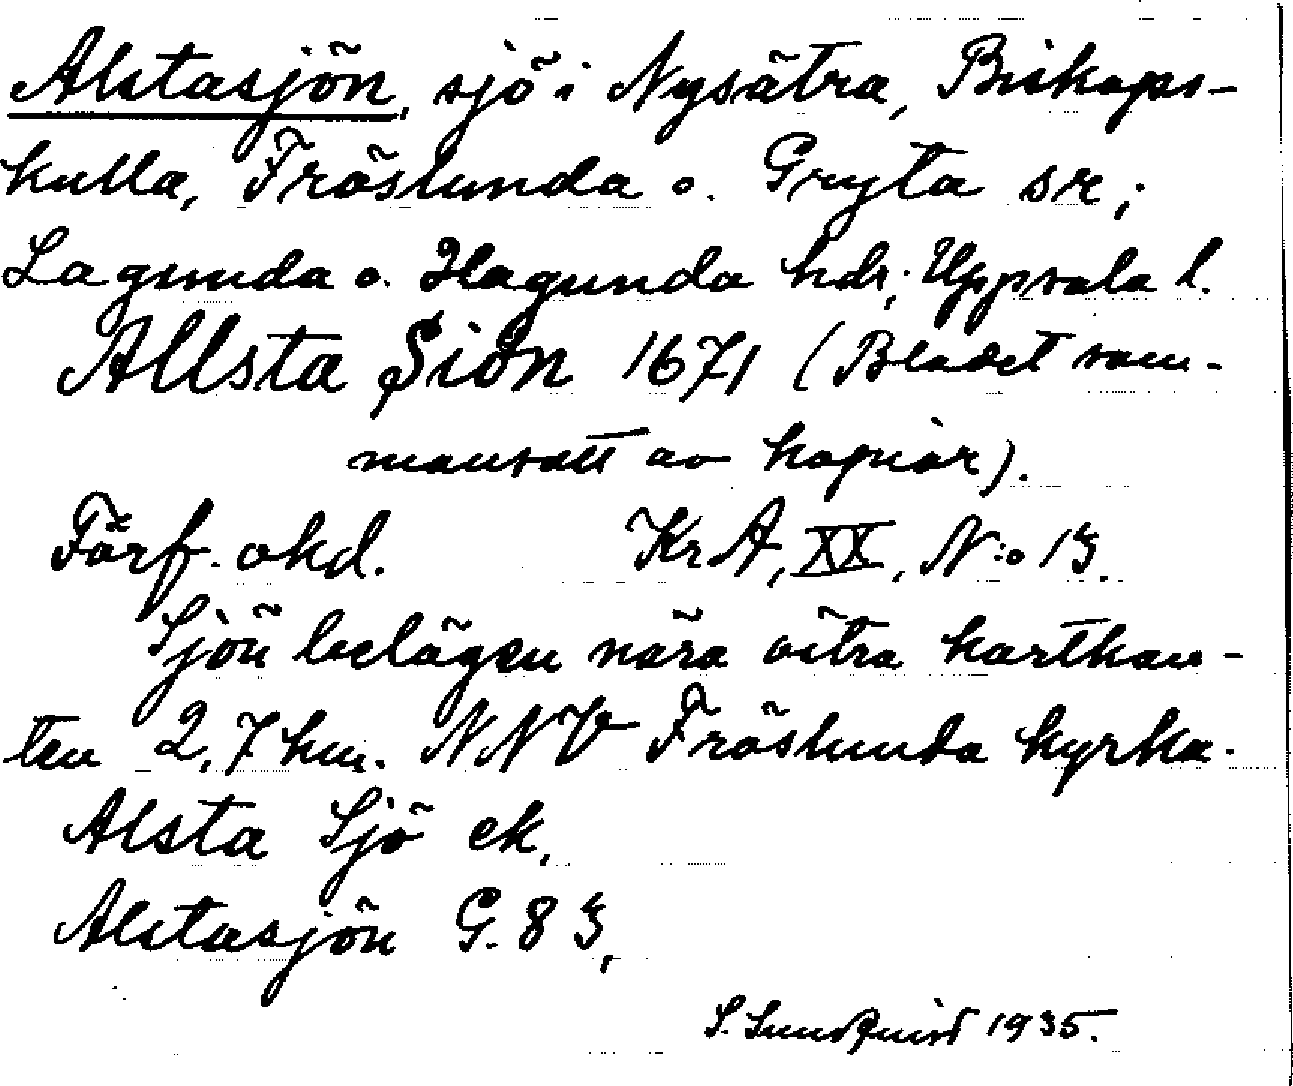 Alstasjön, sjö i Nysätra, Biskops-
kulla, Fröslunda o. Gryta sr;
Lagunda o. Hagunda hdr; Uppsala l.
Allsta Siön 1671 (Bladet sam-
mansatt av kopior).
Förf. okd. KrA, XX, N:o 13.
Sjön belägen nära östra kartkan-
ten 2,7 km. NNV Fröslunda kyrka.
Alsta Sjö ek.
Alstasjön G. 83,
S. Sundquist 1935.